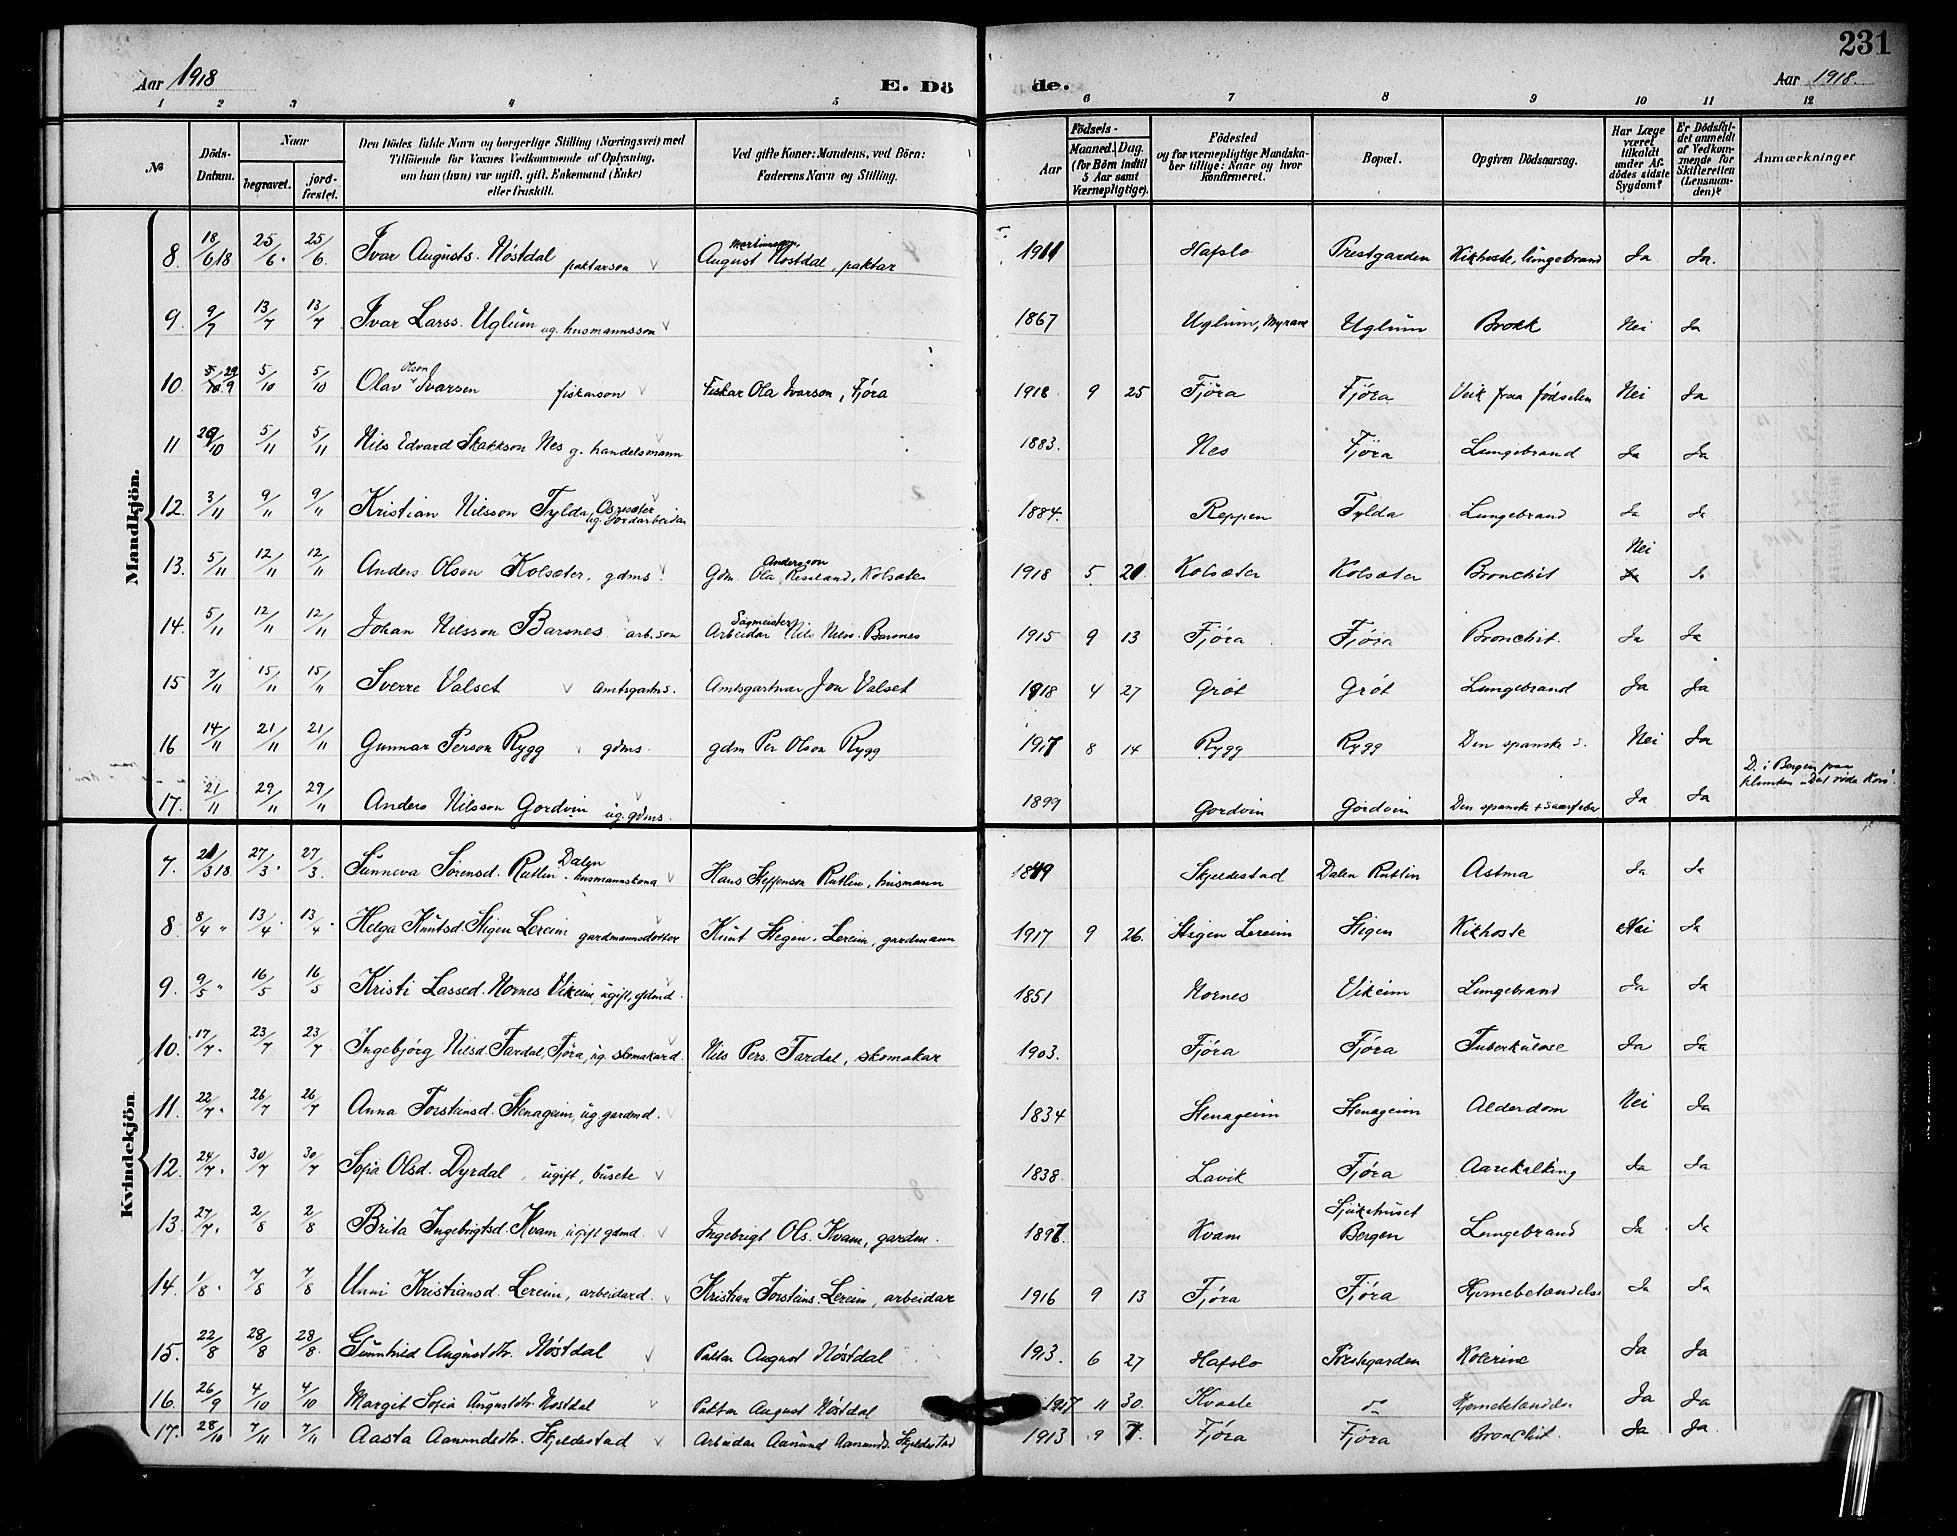 231
Aar 1918
E. Dö de.
Aar 1918.
1 2 3 4 5 6 7 8 9 10 11 12
№
Döds-Datum.
Naar
begravet.
jord-fæstet.
Den Dödes fulde Navn og borgerlige Stilling (Næringsvei) med
Tilföiende for Voxnes Vedkommende af Oplysning,
om han (hun) var ugift, gift, Enkemand (Enke)
eller fraskilt.
Ved gifte Koner: Mandens, ved Börn:
Faderens Navn og Stilling.
Födsels-
Aar
Maaned. Dag.
(for Börn indtil
5 Aar samt
Værnepligtige).
Födested
og for værnepligtige Mandska-
ber tillige: Naar og hvor
konfirmeret.
Bopæl.
Opgiven Dödsaarsag.
Har Læge
været
tilkaldt
under Af-
dödes sidste
Sygdom?
Er Dödsfal-
det anmeldt
af Vedkom-
mende for
Skifteretten
(Lensman-
den)?
Anmærkninger
Mandkjön.
8. 18/6 18 25/6. 25/6. Ivar Augusts. Nöstdal paktarson August Martinson Nöstdal, paktar 1911 Hafslo Prestgarden Kikhoste, lungebrand Ja Ja.
9. 9/7 13/7 13/7 Ivar Larss. Uglum ug. husmannsson 1867 Uglum, Myrane Uglum Brokk Nei Ja
10. 29/9 5/10 5/10 Olav Olson Ivarsen fiskarson Fiskar Ola Ivarson, Fjöra 1918 9 25 Fjöra Fjöra Veik fraa födselen Nei Ja
11 28/10 5/11 5/11 Nils Edvard Skakkson Nes g. handelsmann 1883. Nes Fjöra Lungebrand Ja Ja
12. 3/11 9/11 9/11 Kristian Nilsson Tylda, ug. jordarbeidar 1884. Reppen Tylda Lungebrand Ja Ja
13. 5/11 12/11 12/11 Anders Olson Kolsæter, gdms. Gdm. Ola Andersson Resaland, Kolsæter 1918 5 21 Kolsæter Kolsæter Bronchit Nei Ja
14. 5/11 12/11 12/11 Johan Nilsson Barsnes arb.son Sagmeister Arbeidar Nils Nilss. Barsnes 1915 9 13 Fjöra Fjöra Bronchit. Ja Ja
15 7/11 15/11 15/11 Sverre Valset amtsgartns. Amtsgartnar Jon Valset 1918 4 27 Gröt Gröt Lungebrand Ja Ja
16 14/11 21/11 21/11 Gunnar Person Rygg gdms. gdm Per Olson Rygg 1917 8 14 Rygg Rygg Den spanske s. Nei Ja
17. 21/11 29/11 29/11 Anders Nilsson Gordvin ug. gdms. 1899 Gordvin Gordvin Den spanske + Ja Ja D. i Bergen paa kliniken "Det röde Kors".
Kvindekjön.
7. 21/3 18 27/3. 27/3. Sunneva Sörensd. Rutlin Dalen husmannskona Hans Steffenson Rutlin, husmann 1849 Skjeldestad Dalen Rutlin Astma Ja Ja
8. 8/4 " 13/4. 13/4. Helga Knutsd. Stigen Lereim gardmannsdotter Knut Stigen. Lereim, gardmann 1917 9 26. Stigen Lereim Stigen Kikhoste Nei Ja
9. 9/5 " 16/5 16/5 Kristi Lassed. Nornes Vikeim, ugift, gdmd. 1851 Nornes Vikeim Lungebrand Ja Ja
10. 17/7. 23/7 23/7 Ingebjörg Nilsd. Fardal, Fjöra, ug. skomakard. Nils Pers. Fardal, skomakar 1903. Fjöra Fjöra Tuberkulose Ja Ja
11. 22/7. 26/7 26/7 Anna Torsteinsd. Stenageim, ug. gardmd. 1834 Stenageim Stenageim Alderdom Nei Ja
12. 24/7. 30/7 30/7 Sofia Olsd. Dyrdal, ugift, busete 1838. Lavik Fjöra Aarekalking Ja Ja
13. 27/7. 2/8 2/8 Brita Ingebrigtsd. Kvam ugift gdmd. Ingebrigt Ols. Kvam, gardm. 1897. Kvam Sjukehuset Bergen Lungebrand Ja Ja
14. 1/8. 7/8 7/8 Unni Kristiansd. Lereim, arbeidard. Kristian Torsteins. Lereim, arbeidar 1916 9 13 Fjöra Fjöra Hjernebetændelse Ja Ja
15. 22/8 28/8 28/8. Gunnhild Augustdtr. Nöstdal Paktar August Nöstdal 1913. 6 27 Hafslo Prestegarden Kolerine Ja Ja
16. 26/9 4/10 4/10 Margit Sofia Augustdtr. Nöstdal Paktar August Nöstdal 1917 11 30. Kvaale do Hjernebetændelse Ja Ja
17. 28/10 7/11 7/11 Aasta Aamundsdtr. Skjeldestad Arbeidar Aamund Aamunds. Skjeldestad 1913 9 7. Fjöra Fjöra Bronchit. Ja Ja.